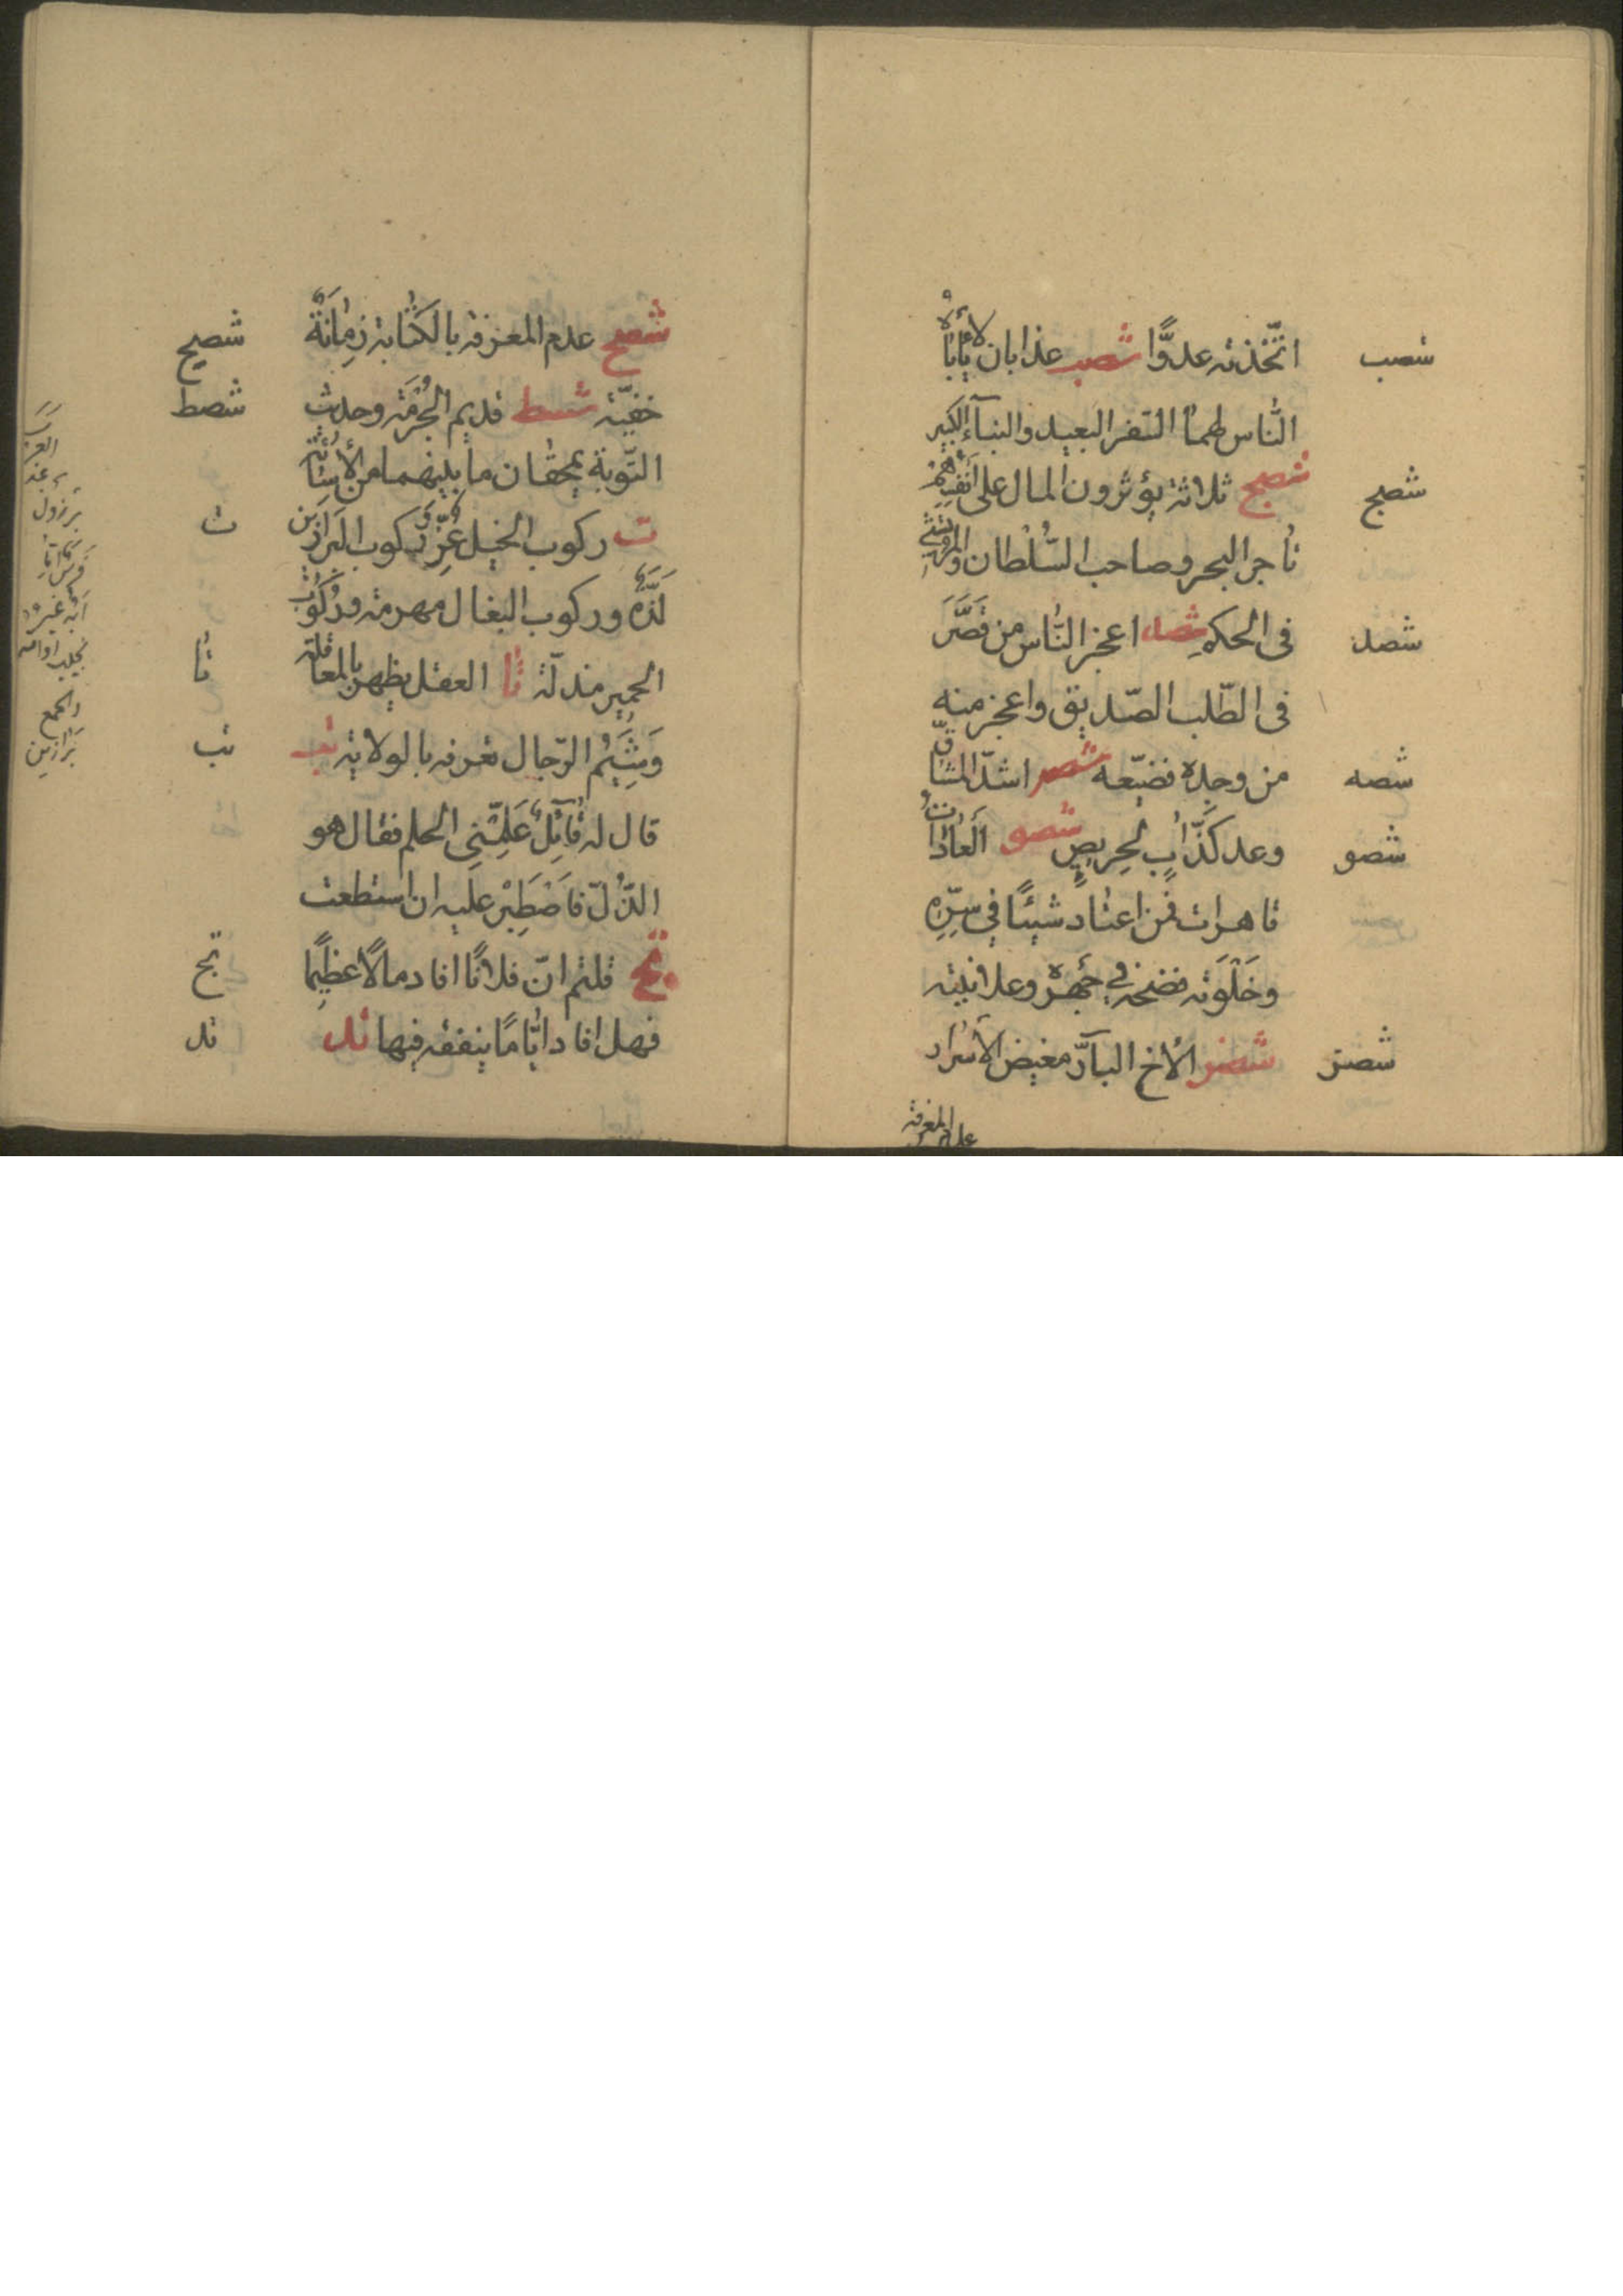 شصب
اتّخذته عدوًّا شصب عذابان لا يأباه
النّاس لهما السّفر البعيد والبنآء الكبير
شصج
شصج ثلاثة يؤثرون المال على أنفسهم
تاجر البحر وصاحب السّلطان والمرتشي
شصد
في الحكم شصد اعجز النّاس من قصّر
في الطّلب الصّديق واعجز منه
شصه
من وجده فضيّعه شصه اشدّ المشاقّ
شصو
وعد كذّاب لحريص شصو ألعادات
قاهرات فمن اعتاد شيئًا في سرّه
وخلوته فضحه في جهره وعلانيته
شصز
شصز الأخ البآرّ مغيض الأسرار
عدم المعرفة
شصح
شصح عدم المعرفة بالكتابة زمانة
شصط
خفيّة شصط قديم الحرمة وحديث
التّوبة يمحقان ما بينهما من الأسائة
ت
ت ركوب الخيل عزّ وركوب البراذين
لذّة وركوب البغال مهرمة وركوب
تا
الحمير مذلّة تا العقل يظهر بالمعاملة
تب
وشيم الرّجال تعرف بالولاية تب
قال له قآئل علّمني الحلم فقال هو
الذّلّ فاصطبر عليه ان استطعت
تج
تج قلتم انّ فلانًا افاد مالًا عظيمًا
تد
فهل افاد ايّامًا ينفقه فيها تد
والجمع
براذين